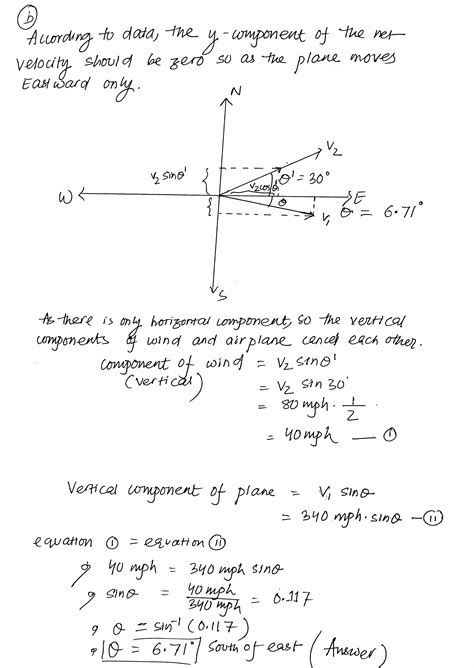 b
According to data, the y-component of the net
velocity should be zero so as the plane moves
Eastward only.
N
V2
V2 sinθ'
θ' = 30°
V2cosθ'
W
E
θ
V1
θ = 6.71°
S
As there is only horizontal component, so the vertical
components of wind and airplane cancel each other.
component of wind = V2 sinθ'
(vertical)
= V2 sin 30°
= 80 mph · 1/2
= 40 mph — i
Vertical component of plane = V1 sinθ
= 340 mph · sinθ — ii
equation i = equation ii
, 40 mph = 340 mph sinθ
, sinθ = 40 mph/340 mph = 0.117
, θ = sin⁻¹ (0.117)
, θ = 6.71° South of east (Answer)